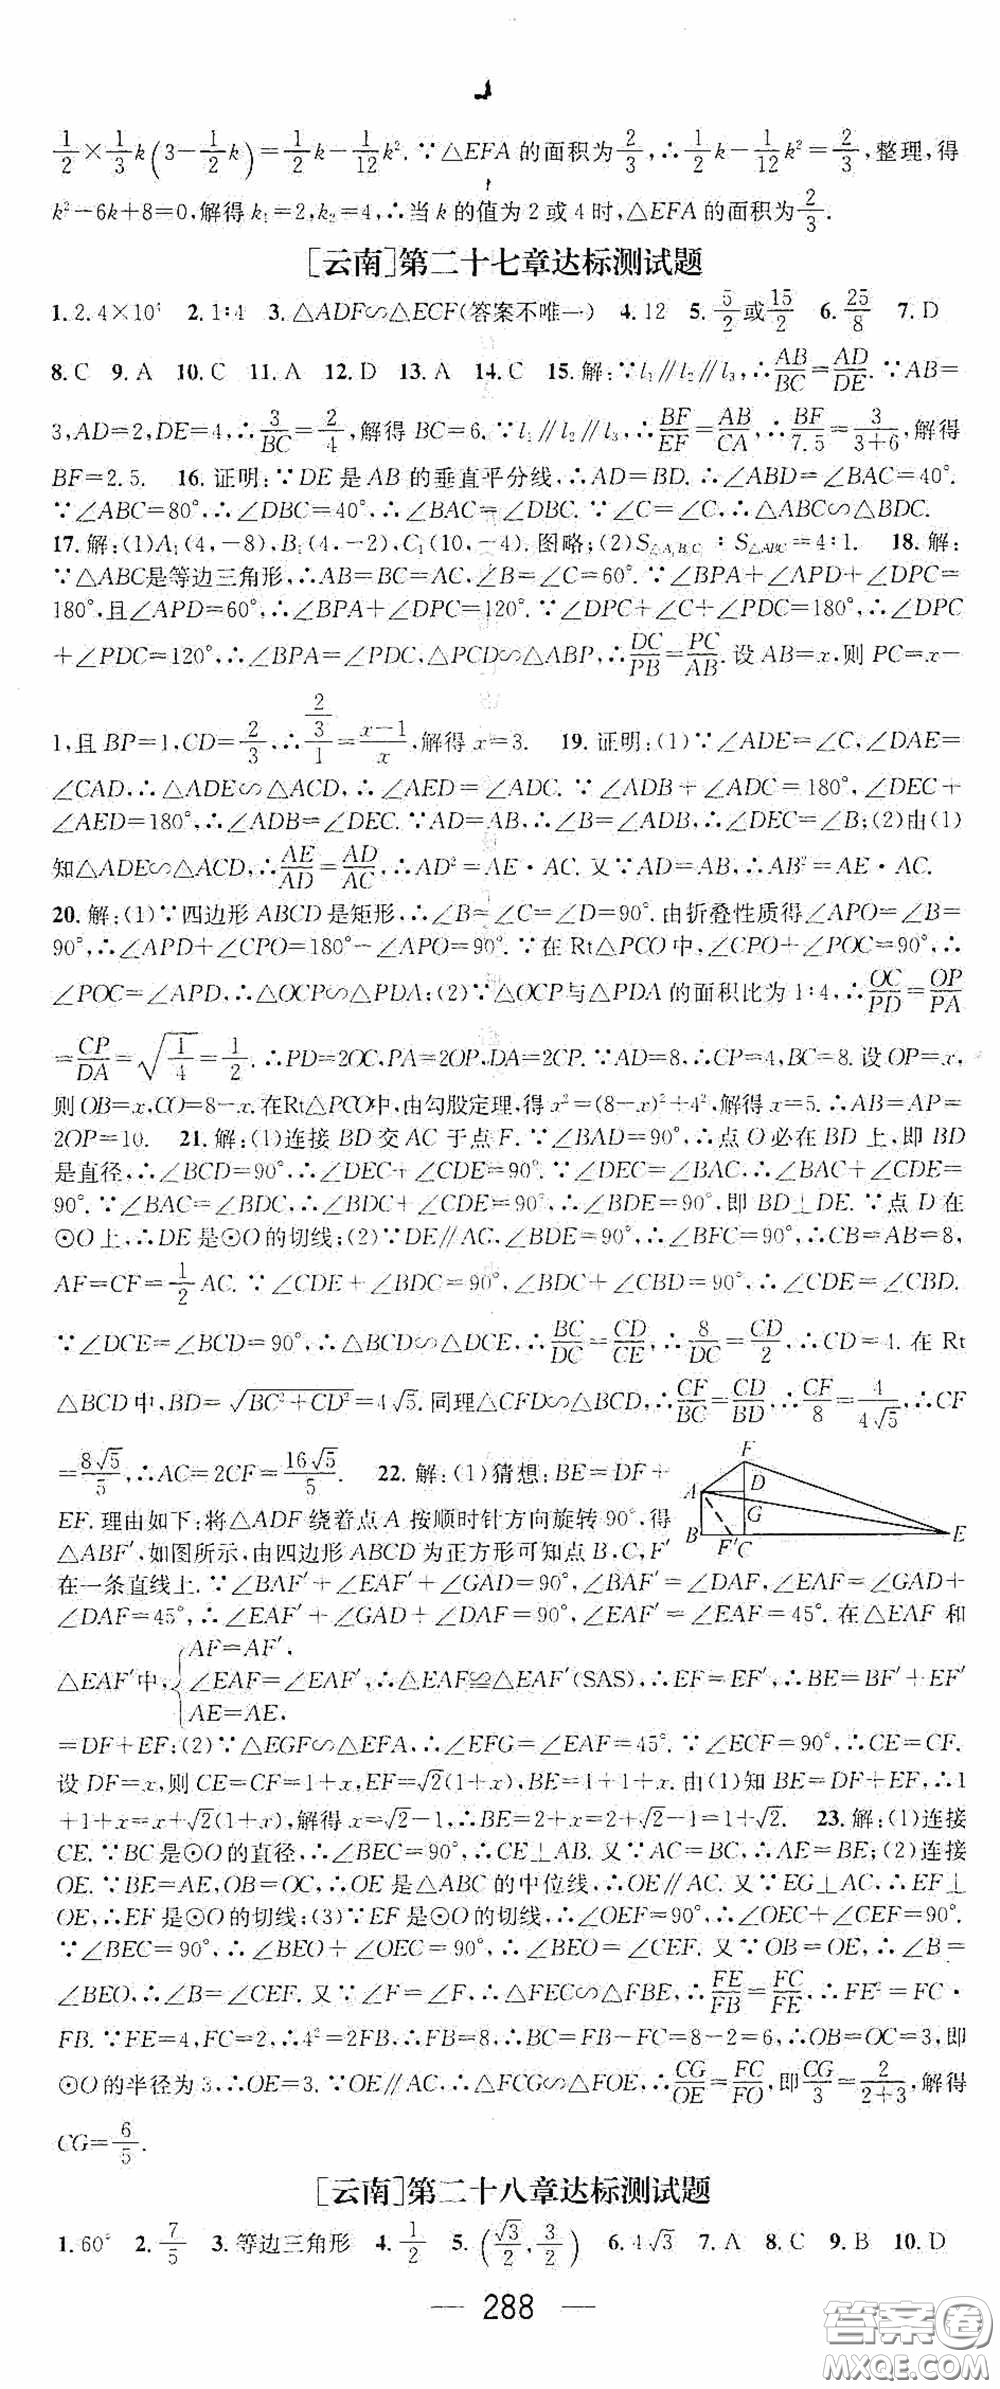 1/2×1/3k(3-1/2k)=1/2k-1/12k². ∵△EFA的面积为2/3,∴1/2k-1/12k²=2/3,整理,得
k²-6k+8=0,解得k₁=2,k₂=4,∴当k的值为2或4时,△EFA的面积为2/3.
[云南]第二十七章达标测试题
1. 2.4×10⁵ 2. 1∶4 3. △ADF∽△ECF(答案不唯一) 4. 12 5. 5/2或15/2 6. 25/8 7. D
8. C 9. A 10. C 11. A 12. D 13. A 14. C 15. 解:∵l₁∥l₂∥l₃,∴AB/BC=AD/DE. ∵AB=
3,AD=2,DE=4,∴3/BC=2/4,解得BC=6. ∵l₁∥l₂∥l₃,∴BF/EF=AB/CA,∴BF/7.5=3/(3+6),解得
BF=2.5. 16. 证明:∵DE是AB的垂直平分线,∴AD=BD. ∴∠ABD=∠BAC=40°.
∵∠ABC=80°,∴∠DBC=40°,∴∠BAC=∠DBC. ∵∠C=∠C,∴△ABC∽△BDC.
17. 解:(1)A₁(4,-8),B₁(4,-2),C₁(10,-4). 图略;(2)S△A₁B₁C₁∶S△ABC=4∶1. 18. 解:
∵△ABC是等边三角形,∴AB=BC=AC,∠B=∠C=60°. ∵∠BPA+∠APD+∠DPC=
180°,且∠APD=60°,∴∠BPA+∠DPC=120°. ∵∠DPC+∠C+∠PDC=180°,∴∠DPC
+∠PDC=120°,∴∠BPA=∠PDC,△PCD∽△ABP,∴DC/PB=PC/AB. 设AB=x,则PC=x-
1,且BP=1,CD=2/3,∴(2/3)/1=(x-1)/x,解得x=3. 19. 证明:(1)∵∠ADE=∠C,∠DAE=
∠CAD,∴△ADE∽△ACD,∴∠AED=∠ADC. ∵∠ADB+∠ADC=180°,∠DEC+
∠AED=180°,∴∠ADB=∠DEC. ∵AD=AB,∴∠B=∠ADB,∴∠DEC=∠B;(2)由(1)
知△ADE∽△ACD,∴AE/AD=AD/AC,∴AD²=AE·AC. 又∵AD=AB,∴AB²=AE·AC.
20. 解:(1)∵四边形ABCD是矩形,∴∠B=∠C=∠D=90°. 由折叠性质得∠APO=∠B=
90°,∴∠APD+∠CPO=180°-∠APO=90°. ∵在Rt△PCO中,∠CPO+∠POC=90°,∴
∠POC=∠APD,∴△OCP∽△PDA;(2)∵△OCP与△PDA的面积比为1∶4,∴OC/PD=OP/PA
=CP/DA=√(1/4)=1/2. ∴PD=2OC,PA=2OP,DA=2CP. ∵AD=8,∴CP=4,BC=8. 设OP=x,
则OB=x,CO=8-x. 在Rt△PCO中,由勾股定理,得x²=(8-x)²+4²,解得x=5. ∴AB=AP=
2OP=10. 21. 解:(1)连接BD交AC于点F. ∵∠BAD=90°,∴点O必在BD上,即BD
是直径,∴∠BCD=90°,∴∠DEC+∠CDE=90°. ∵∠DEC=∠BAC,∴∠BAC+∠CDE=
90°. ∵∠BAC=∠BDC,∴∠BDC+∠CDE=90°,∴∠BDE=90°,即BD⊥DE. ∵点D在
⊙O上,∴DE是⊙O的切线;(2)∵DE∥AC,∠BDE=90°,∴∠BFC=90°,∴CB=AB=8,
AF=CF=1/2AC. ∵∠CDE+∠BDC=90°,∠BDC+∠CBD=90°,∴∠CDE=∠CBD.
∵∠DCE=∠BCD=90°,∴△BCD∽△DCE,∴BC/DC=CD/CE,∴8/DC=CD/2,∴CD=4. 在Rt
△BCD中,BD=√(BC²+CD²)=4√5. 同理△CFD∽△BCD,∴CF/BC=CD/BD,∴CF/8=4/(4√5),∴CF
=8√5/5,∴AC=2CF=16√5/5. 22. 解:(1)猜想:BE=DF+
EF. 理由如下:将△ADF绕着点A按顺时针方向旋转90°,得
△ABF′,如图所示,由四边形ABCD为正方形可知点B,C,F′
F
A D
G
B F′ C E
在一条直线上. ∵∠BAF′+∠EAF′+∠GAD=90°,∠BAF′=∠DAF,∠EAF=∠GAD+
∠DAF=45°,∴∠EAF′+∠GAD+∠DAF=90°,∠EAF′=∠EAF=45°. 在△EAF和
△EAF′中,{AF=AF′, ∠EAF=∠EAF′, AE=AE, ∴△EAF≌△EAF′(SAS),∴EF=EF′,∴BE=BF′+EF′
=DF+EF;(2)∵△EGF∽△EFA,∴∠EFG=∠EAF=45°. ∵∠ECF=90°,∴CE=CF.
设DF=x,则CE=CF=1+x,EF=√2(1+x),BE=1+1+x. 由(1)知BE=DF+EF,∴1
+1+x=x+√2(1+x),解得x=√2-1,∴BE=2+x=2+√2-1=1+√2. 23. 解:(1)连接
CE. ∵BC是⊙O的直径,∴∠BEC=90°,∴CE⊥AB. 又∵AC=BC,∴AE=BE;(2)连接
OE. ∵BE=AE,OB=OC,∴OE是△ABC的中位线,∴OE∥AC. 又∵EG⊥AC,∴EF⊥
OE,∴EF是⊙O的切线;(3)∵EF是⊙O的切线,∴∠OEF=90°,∴∠OEC+∠CEF=90°.
∵∠BEC=90°,∴∠BEO+∠OEC=90°,∴∠BEO=∠CEF. 又∵OB=OE,∴∠B=
∠BEO,∴∠B=∠CEF. 又∵∠F=∠F,∴△FEC∽△FBE,∴FE/FB=FC/FE,∴FE²=FC·
FB. ∵FE=4,FC=2,∴4²=2FB,∴FB=8,∴BC=FB-FC=8-2=6,∴OB=OC=3,即
⊙O的半径为3,∴OE=3. ∵OE∥AC,∴△FCG∽△FOE,∴CG/OE=FC/FO,即CG/3=2/(2+3),解得
CG=6/5.
[云南]第二十八章达标测试题
1. 60° 2. 7/5 3. 等边三角形 4. 1/2 5. (√3/2,3/2) 6. 4√3 7. A 8. C 9. B 10. D
— 288 —
答案圈
MXQE.COM